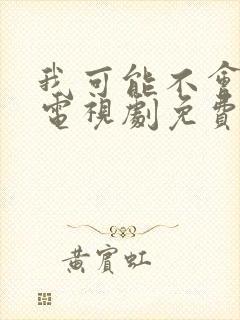 我可能不會
電視劇免費
黃賓虹